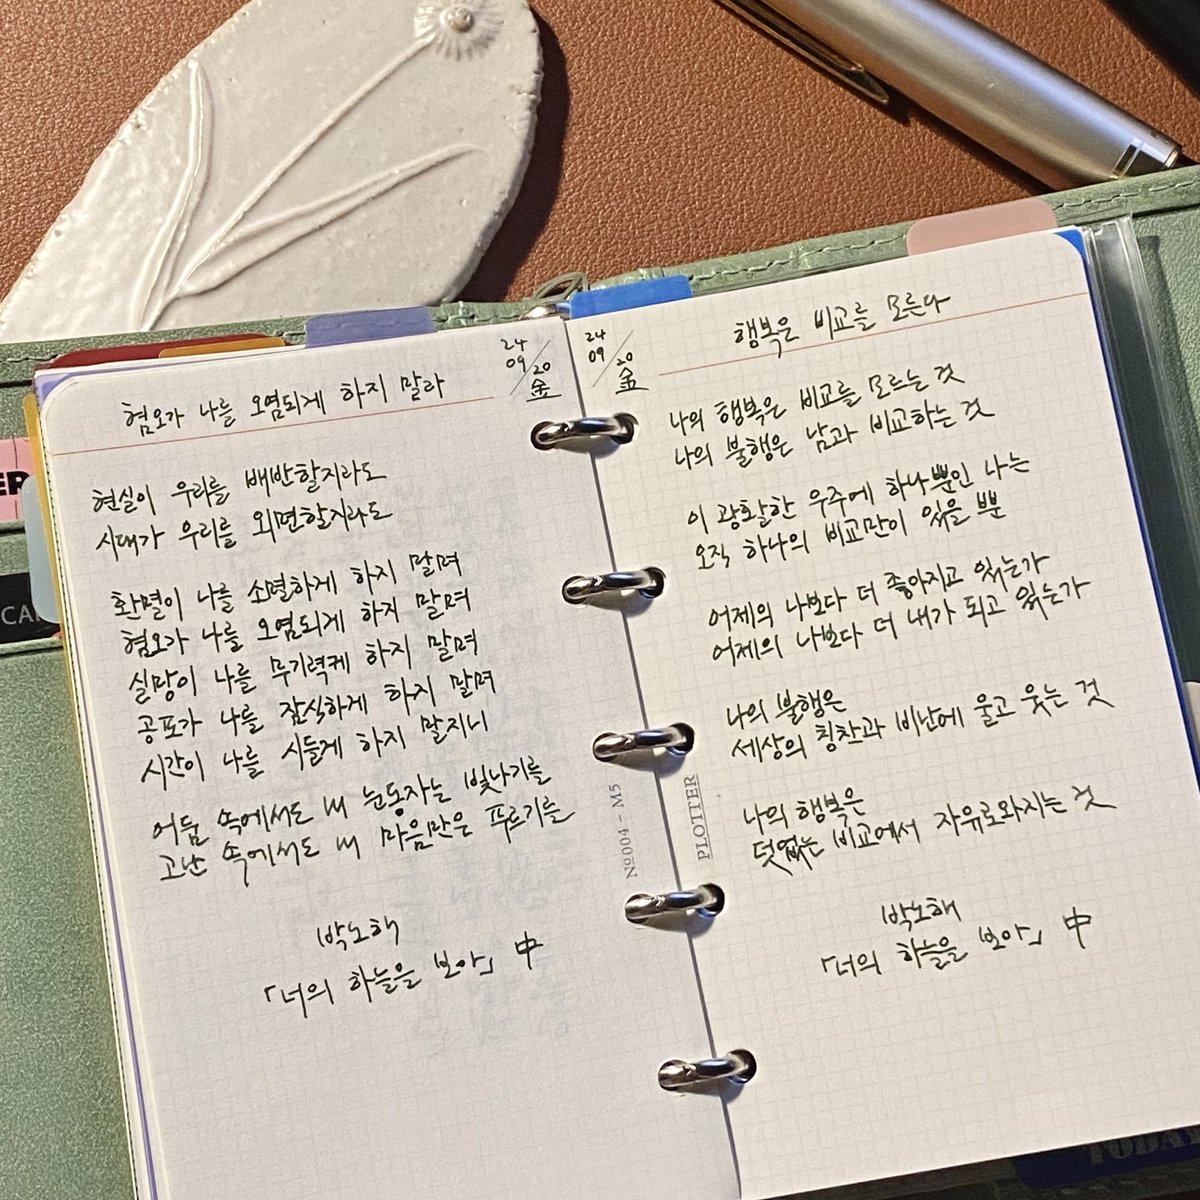 24
09/20
金
혐오가 나를 오염되게 하지 말라
현실이 우리를 배반할지라도
시대가 우리를 외면할지라도
환멸이 나를 소멸하게 하지 말며
혐오가 나를 오염되게 하지 말며
실망이 나를 무기력케 하지 말며
공포가 나를 잠식하게 하지 말며
시간이 나를 시들게 하지 말지니
어둠 속에서도 내 눈동자는 빛나기를
고난 속에서도 내 마음만은 푸르기를
박노해
「너의 하늘을 보아」 中
Nº004 – M5
24
09/20
金
행복은 비교를 모른다
나의 행복은 비교를 모르는 것
나의 불행은 남과 비교하는 것
이 광활한 우주에 하나뿐인 나는
오직 하나의 비교만이 있을 뿐
어제의 나보다 더 좋아지고 있는가
어제의 나보다 더 내가 되고 있는가
나의 불행은
세상의 칭찬과 비난에 울고 웃는 것
나의 행복은
덧없는 비교에서 자유로와지는 것
박노해
「너의 하늘을 보아」 中
PLOTTER
TODAY